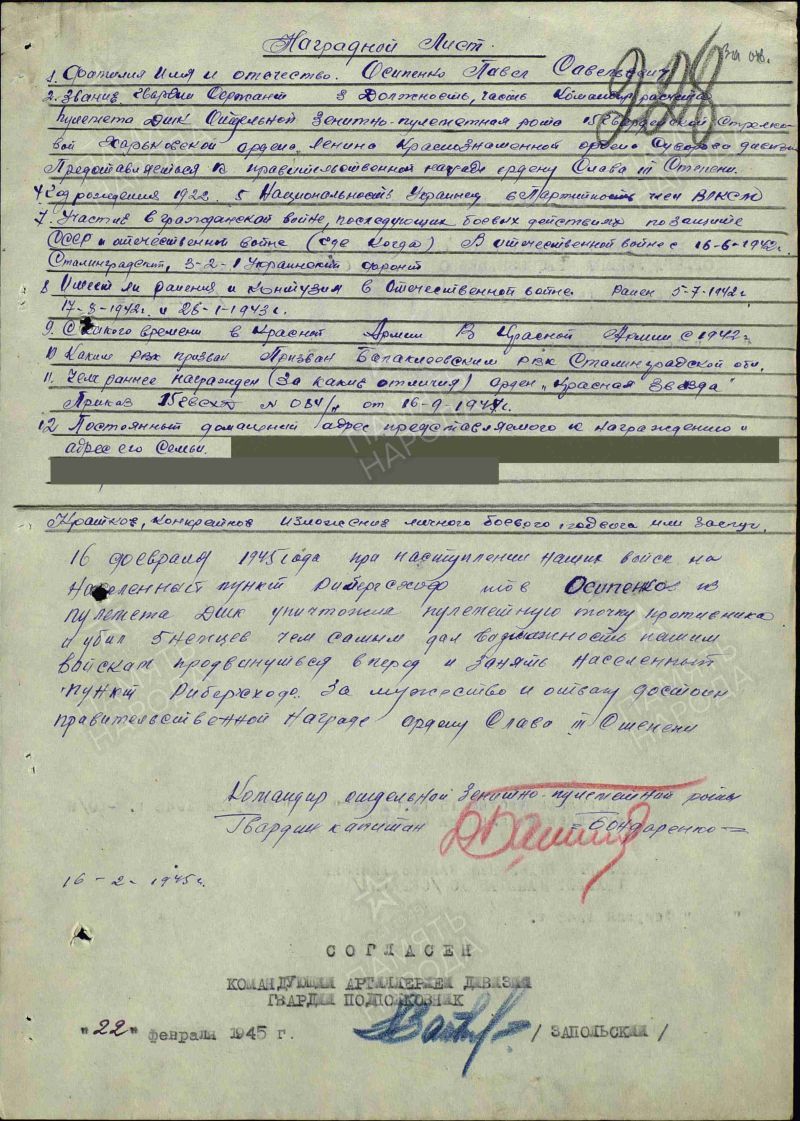 Наградной Лист.
1. Фамилия Имя и отчество. Осипенко Павел Савельевич
2. Звание Гвардии Сержант 3 Должность, часть Командир расчета
пулемета ДШК Отдельной Зенитно-пулеметная рота 15 Гвардейской Стрелко-
вой Харьковской ордена Ленина Краснознаменной ордена Суворова дивизии
Предоставляеться к правительственной награде ордену Слава III Степени.
4 Год рождения 1922. 5 Национальность Украинец 6 Партийность член ВЛКСМ
7. Участие в гражданской войне, последующих боевых действиях по защите
СССР и отечественной войне (где когда) В отечественной войне с 16-6-1942г.
Сталинградский, 3-2-1 Украинский фронт
8 Имеет ли ранения и контузии в Отечественной войне Ранен 5-7-1942г.
17-8-1942г. и 26-1-1943г.
9. С какого времени в Красной Армии В Красной Армии с 1942г
10 Каким РВК призван Призван Балаклеевским РВК Сталинградской обл.
11. Чем раннее награжден (За какие отличия) орден "Красная Звезда"
Приказ 15 ГвСКД N 084/н от 16-9-1944г.
12 Постоянный домашний адрес представляемого к награждению и
адрес его Семьи.
Краткое, конкретное изложение личного боевого подвига или заслуг.
16 февраля 1945 года при наступлении наших войск на
Населенный пункт Риберсхоф тов Осипенко из
пулемета ДШК уничтожил пулеметную точку противника
и убил 5 немцев чем самым дал возможность нашим
войскам продвинуться вперед и занять населенный
пункт Риберсходе. За мужество и отвагу достоин
правительственной Награде ордену Слава III Степени
Командир отдельной Зенитно-пулеметной роты
Гвардии капитан =Бондаренко=
16-2-1945г.
СОГЛАСЕН
КОМАНДУЮЩИЙ АРТИЛЛЕРИЕЙ ДИВИЗИИ
ГВАРДИИ ПОДПОЛКОВНИК
"22" февраля 1945 г. / ЗАПОЛЬСКИЙ /
ПАМЯТЬ НАРОДА